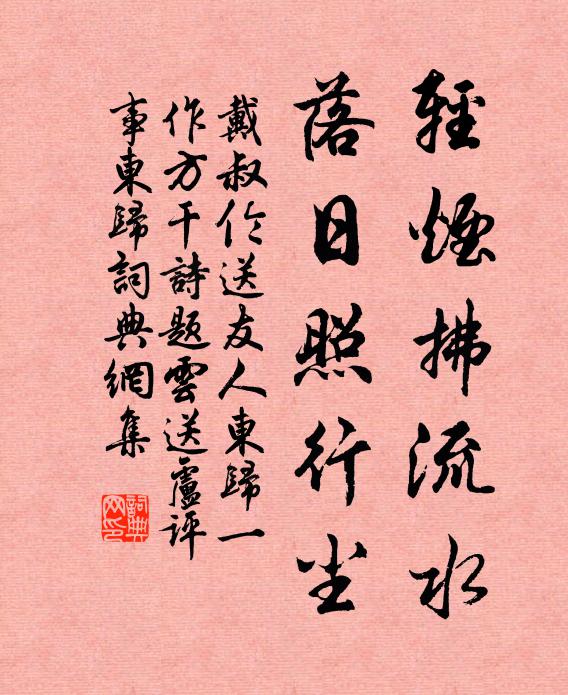 輕煙拂流水
落日照行尘
戴叔伦送友人東歸一
作方干詩题雲送盧評
事東歸詞典網集
詞典网印